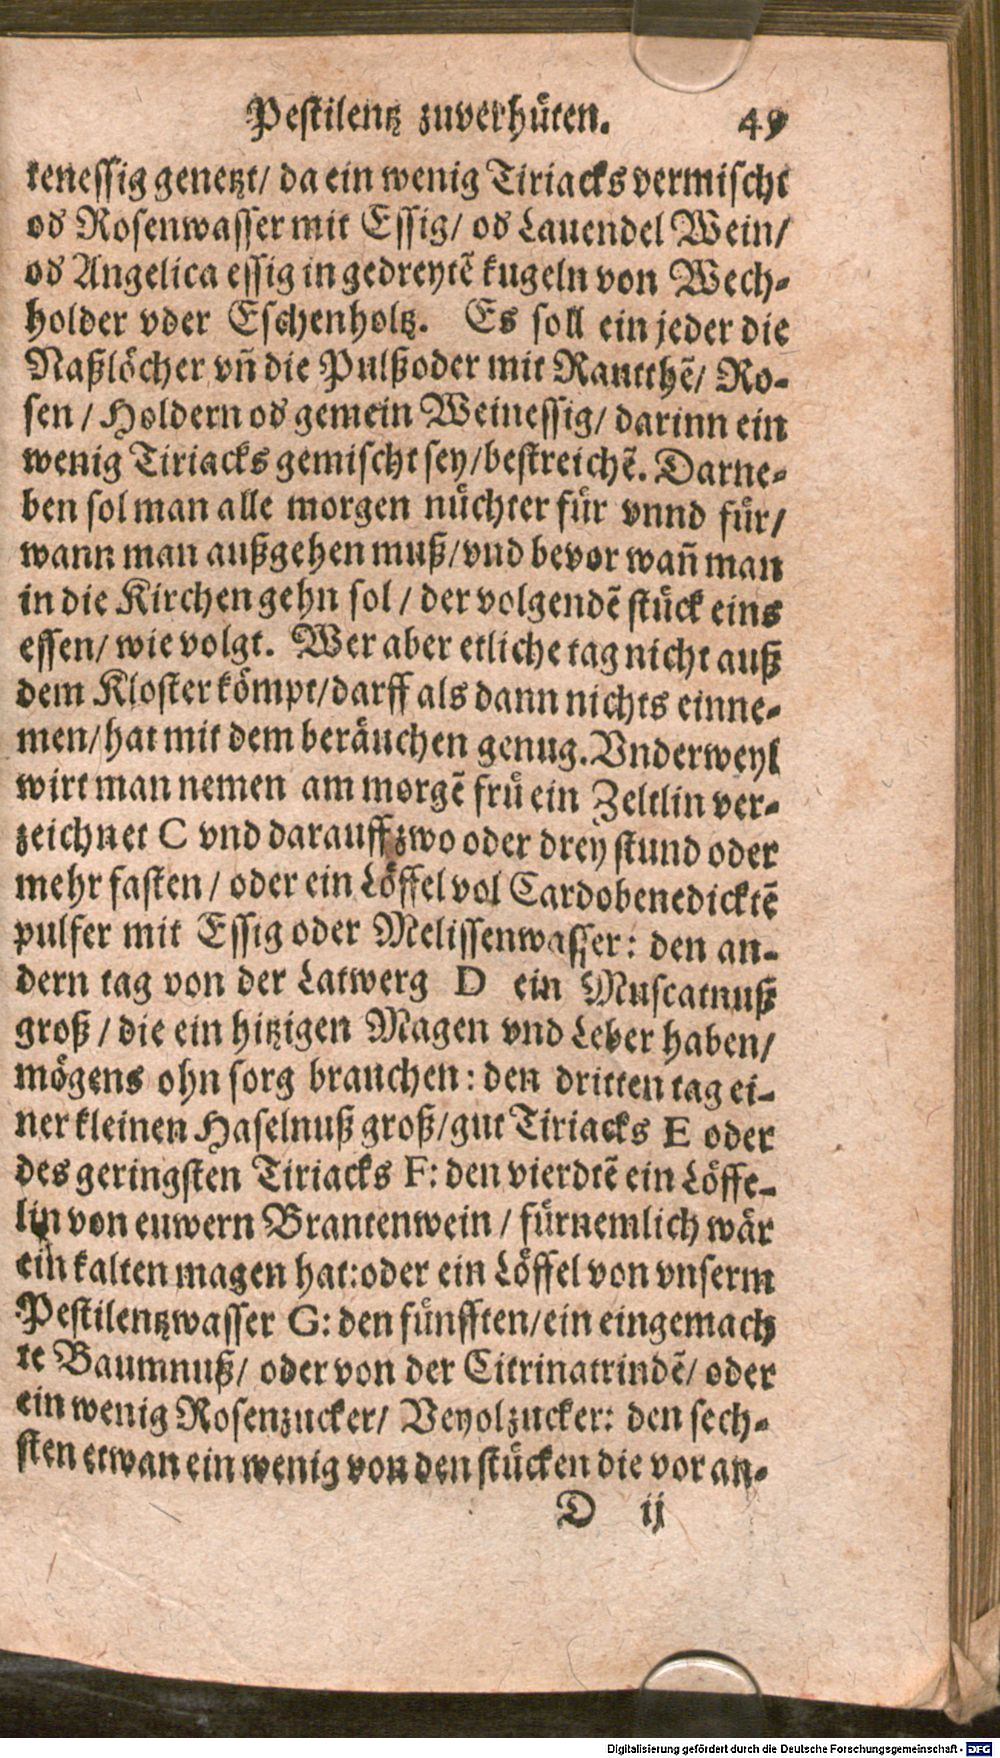 Pestilentz zuverhuͤten. 49
tenessig genetzt/ da ein wenig Tiriacks vermischt
od Rosenwasser mit Essig/ od Lauendel Wein/
od Angelica essig in gedreytẽ kugeln von Wech-
holder vder Eschenholtz. Es soll ein jeder die
Naßloͤcher vñ die Pulßoder mit Rautthẽ/ Ro-
sen / Holdern od gemein Weinessig/ darinn ein
wenig Tiriacks gemischt sey/bestreichẽ. Darne-
ben sol man alle morgen nuͤchter fuͤr vnnd fuͤr/
wann man außgehen muß/vnd bevor wañ man
in die Kirchen gehn sol / der volgendẽ stuͤck eins
essen/ wie volgt. Wer aber etliche tag nicht auß
dem Kloster koͤmpt/darff als dann nichts einne-
men/hat mit dem beraͤuchen genug. Vnderweyl
wirt man nemen am morgẽ fruͤ ein Zeltlin ver-
zeichnet C vnd darauff zwo oder drey stund oder
mehr fasten / oder ein Loͤffel vol Cardobenedicktẽ
pulfer mit Essig oder Melissenwasser: den an-
dern tag von der Latwerg D ein Muscatnuß
groß / die ein hitzigen Magen vnd Leber haben/
moͤgens ohn sorg brauchen: den dritten tag ei-
ner kleinen Haselnuß groß/gut Tiriacks E oder
des geringsten Tiriacks F: den vierdtẽ ein Loͤffe-
lin von euwern Brantenwein / fuͤrnemlich waͤr
ein kalten magen hat:oder ein Loͤffel von vnserm
Pestilentzwasser G: den fuͤnfften/ein eingemach
te Baumnuß/ oder von der Citrinatrindẽ/ oder
ein wenig Rosenzucker/ Veyolzucker: den sech-
sten etwan ein wenig von den stuͤcken die vor an-
D ij
Digitalisierung gefördert durch die Deutsche Forschungsgemeinschaft - DFG